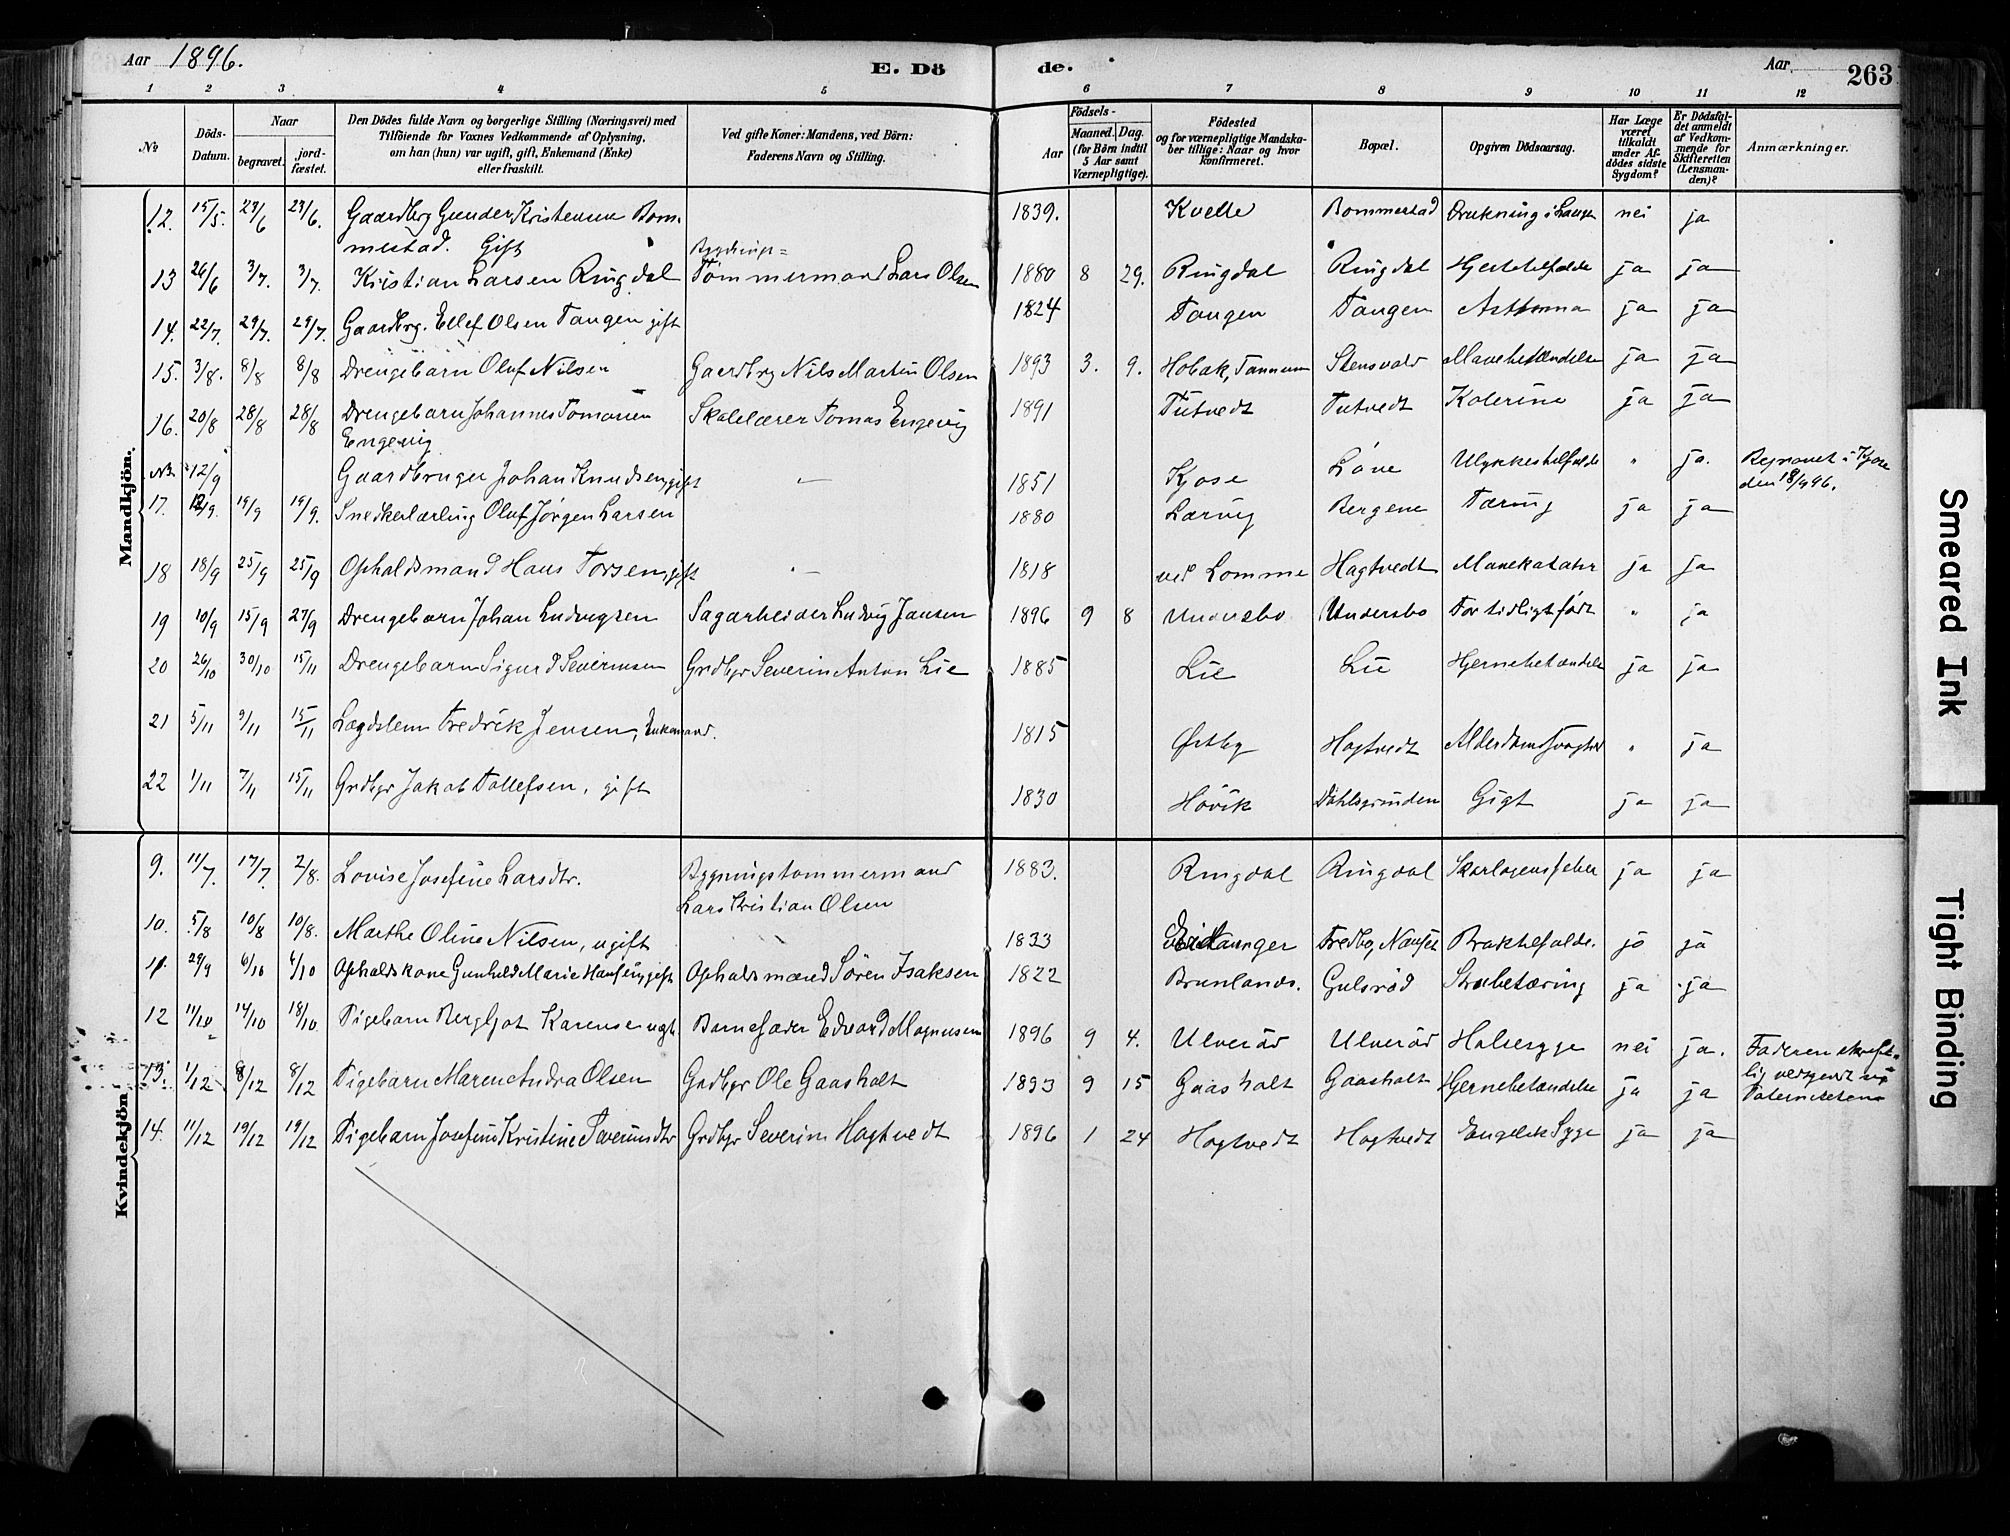 Aar 1896. E. Dö de. Aar 263
1 2 3 4 5 6 7 8 9 10 11 12
No
Döds-Datum.
Naar
begravet.
jord-fæstet.
Den Dödes fulde Navn og borgerlige Stilling (Næringsvei) med
Tilföiende for Voxnes Vedkommende af Oplysning,
om han (hun) var ugift, gift, Enkemand (Enke)
eller fraskilt.
Ved gifte Koner: Mandens, ved Börn:
Faderens Navn og Stilling.
Födsels-
Aar
Maaned. Dag.
(for Börn indtil
5 Aar samt
Værnepligtige).
Födested
og for værnepligtige Mandska-
ber tillige: Naar og hvor
konfirmeret.
Bopæl.
Opgiven Dödsaarsag.
Har Læge
været
tilkaldt
under Af-
dödes sidste
Sygdom?
Er Dödsfal-
det anmeldt
af Vedkom-
mende for
Skifteretten
(Lensman-
den)?
Anmærkninger.
Mandkjön.
12. 15/5. 23/6 23/6. Gaardbrg Gunder Kristensen Bom- 1839. Kvelle Bommestad Drukning i Laagen nei ja
mestad. Gift
Bygnings=
13 26/6 3/7. 3/7. Kristian Larsen Ringdal Tömmermand Lars Olsen 1880 8 29. Ringdal Ringdal Hjertelfælde ja ja
14. 22/7. 29/7. 29/7. Gaardbrg. Ellef Olsen Tangen gift 1824 Tangen Tangen Asthma ja ja
15. 3/8. 8/8 8/8 Drengebarn Oluf Nilsen Gaardbrg Nils Martin Olsen 1893 3. 9. Hobæk, Tannum Stensvald Mavebetændelse ja ja
16. 20/8 28/8 28/8 Drengebarn Johannes Tomasen Skolelærer Tomas Engevig 1891 Tutvedt Tutvedt Kolerine ja ja
Engevig
NB. 12/9 Gaardbruger Johan Knudsen, gift — 1851 Kjose Löve Ulykkestilfælde " ja. Begravet i Kjose
den 18/9 96.
17. 12/9. 19/9 19/9. Snedkerlærling Oluf Jörgen Larsen 1880 Larvig Bergene Tæring ja ja
18 18/9 25/9 25/9 Opholdsmand Hans Torsen, gift — 1818 ved Lomme Hagtvedt Mavekatarr ja ja
19 10/9 15/9 27/9 Drengebarn Johan Ludvigsen Sagarbeider Ludvig Jansen 1896 9 8 Undersbo Undersbo For tidligt födt " ja
20 26/10 30/10 15/11 Drengebarn Sigurd Severinsen Grdbgr Severin Anton Lie 1885 Lie Lie Hjernebetændelse ja ja
21 5/11 9/11 15/11 Lægdslem Fredrik Jensen, Enkemand. 1815 Østby Hagtvedt Alderdomssvaghed " ja
22 1/11 7/11 15/11 Grdbgr Jakob Tollefsen, gift 1830 Hövik Dahlsgrinden Gigt ja ja
Kvindekjön
9. 11/7. 17/7. 2/8. Lovise Josefine Larsdtr. Bygningstömmermand 1883. Ringdal Ringdal Skarlagensfeber ja ja
Lars Kristian Olsen
10. 5/8 10/8 10/8. Marthe Oline Nilsen, ugift 1833 Eidanger Fredbo, Nanset Broktilfælde. ja ja
11. 29/9 6/10 6/10 Opholdskone Gunhild Marie Hansen, gift Opholdsmand Sören Isaksen 1822 Brunlands. Gulsröd Strubetæring ja ja
12 11/10 14/10 18/10. Pigebarn Bergljot Karense ugt. Barnefader Edvard Magnusen 1896 9 4. Ulveröd Ulveröd Halssyge nei ja. Faderen skrift-
lig vedgaaet sig
Paterniteten
13. 1/12 8/12 8/12 Pigebarn Maren Andra Olsen Grdbgr Ole Gaasholt 1893 9 15 Gaasholt Gaasholt Hjernebetændelse ja ja
14. 11/12 19/12 19/12 Pigebarn Josefine Kristine Severinsdtr Grdbgr Severin Hagtvedt 1896 1 24 Hagtvedt Hagtvedt Engelsk Syge ja ja
Smeared Ink
Tight Binding